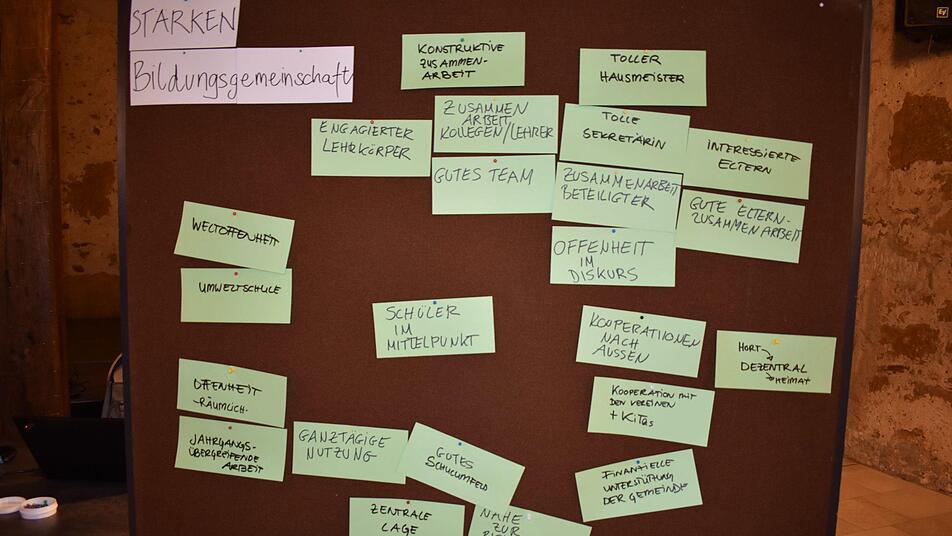 STÄRKEN
Bildungsgemeinschaft
KONSTRUKTIVE
ZUSAMMEN-
ARBEIT
TOLLER
HAUSMEISTER
ENGAGIERTER
LEHRKÖRPER
ZUSAMMEN
ARBEIT
KOLLEGEN/LEHRER
TOLLE
SEKRETÄRIN
INTERESSIERTE
ELTERN
GUTES TEAM
ZUSAMMENARBEIT
BETEILIGTER
GUTE ELTERN-
ZUSAMMENARBEIT
OFFENHEIT
IM
DISKURS
WELTOFFENHEIT
UMWELTSCHULE
SCHÜLER
IM
MITTELPUNKT
KOOPERATIONEN
NACH
AUSSEN
HORT
DEZENTRAL
HEIMAT
OFFENHEIT
-RÄUMLICH-
KOOPERATION MIT
DEN VEREINEN
+ KITAS
JAHRGANGS-
ÜBERGREIFENDE
ARBEIT
GANZTÄGIGE
NUTZUNG
GUTES
SCHULUMFELD
FINANZIELLE
UNTERSTÜTZUNG
DER GEMEINDE
ZENTRALE
LAGE
NÄHE
ZUR